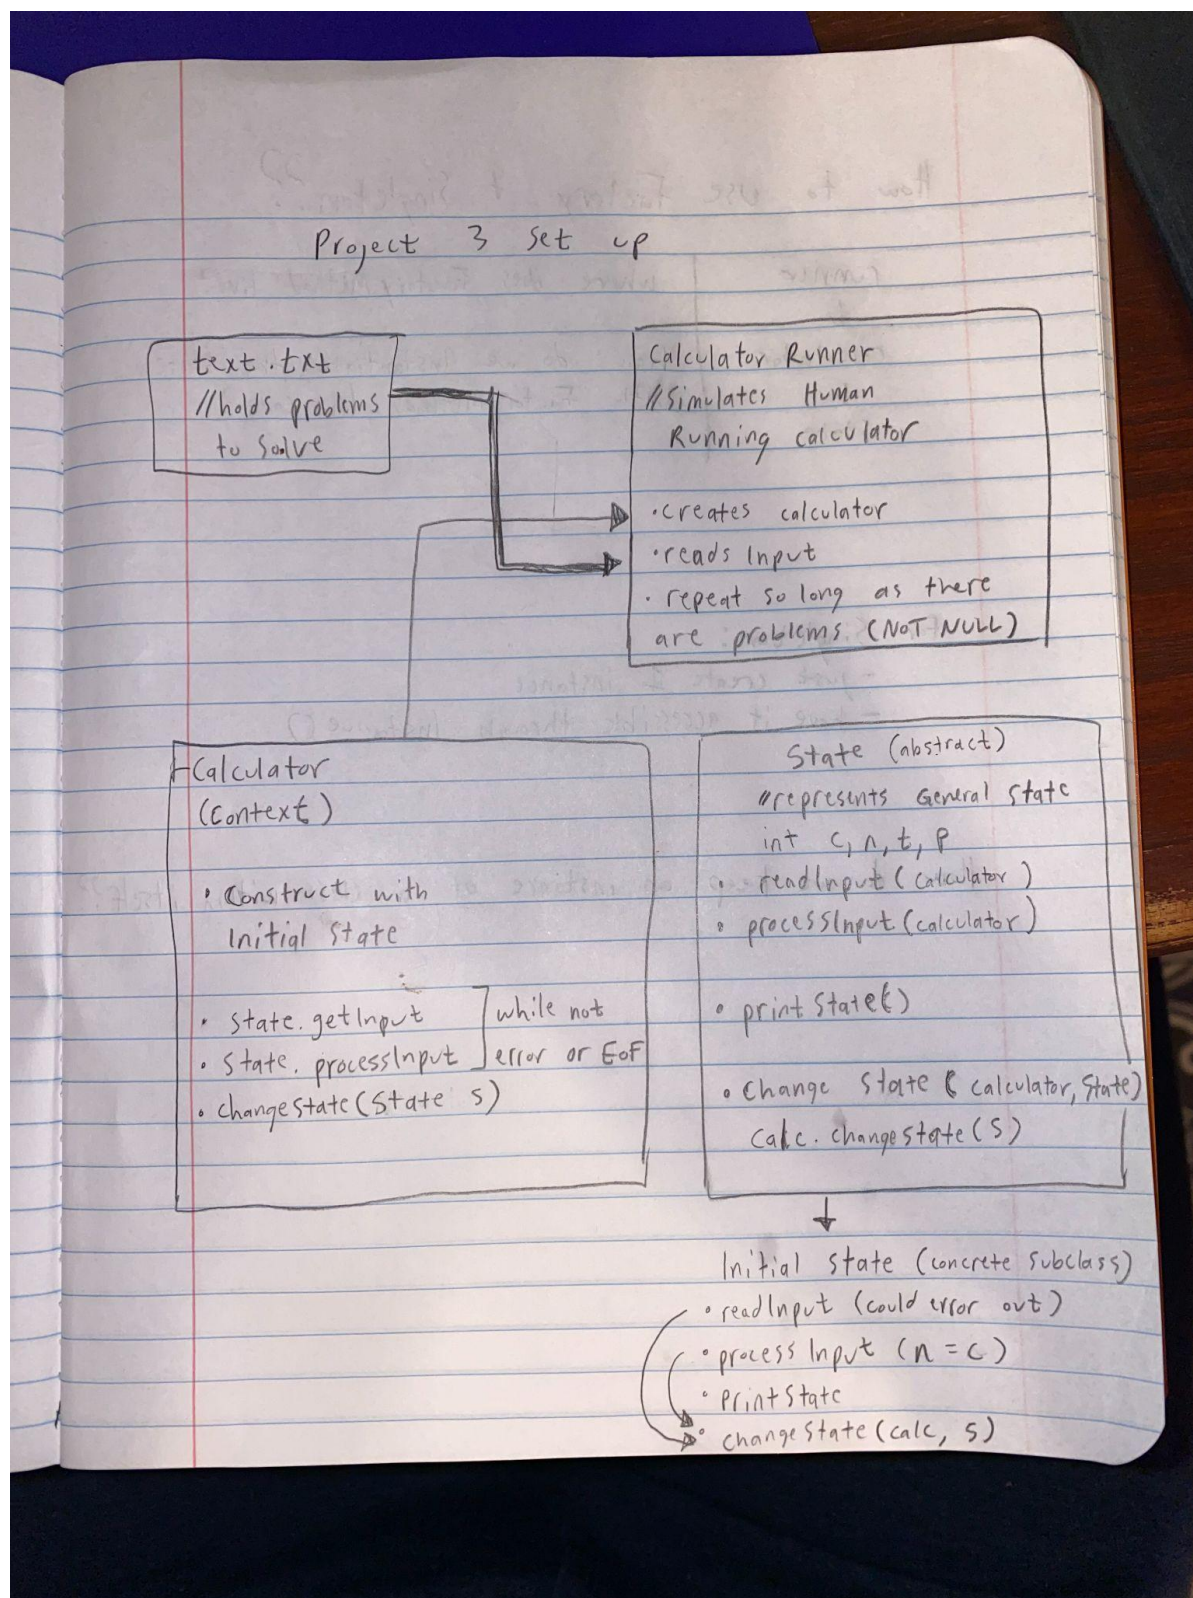 Project 3 set up
text.txt
//holds problems
to solve
Calculator Runner
//Simulates Human
Running calculator
•creates calculator
•reads Input
• repeat so long as there
are problems (NOT NULL)
Calculator
(Context)
• Construct with
Initial State
• State.getInput
• State.processInput
while not
error or EoF
• changeState(State s)
State (abstract)
//represents General State
int c, n, t, p
• readInput(calculator)
• processInput(calculator)
• printState()
• Change State (calculator, State)
Calc.changeState(S)
Initial State (concrete subclass)
• readInput (could error out)
• process Input (n = c)
• PrintState
• changeState(calc, s)